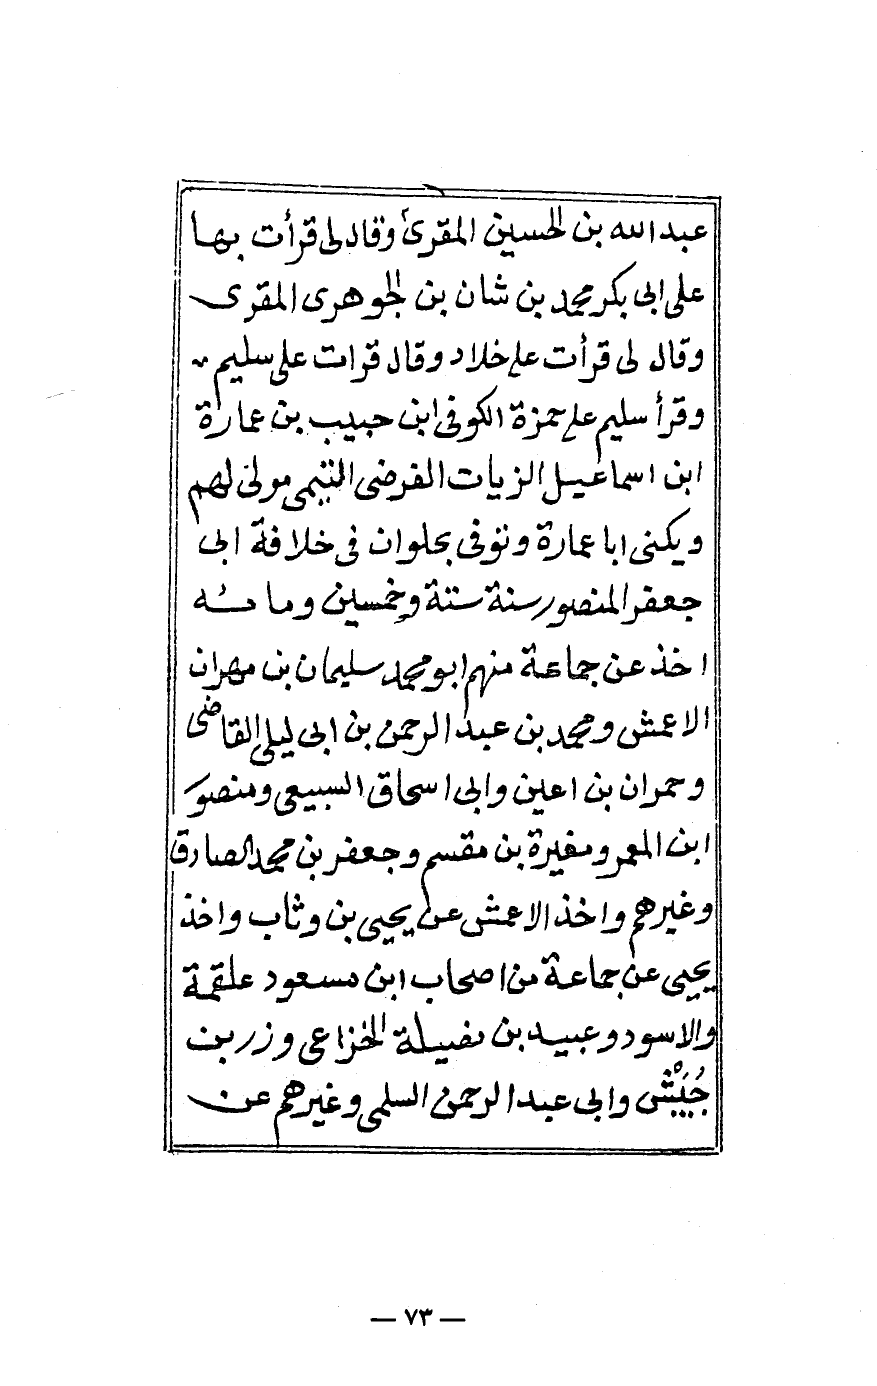 عبدالله بن الحسين المقرئ وقال لى قرأت بها
على ابى بكر محمد بن شان بن الجوهرى المقرى
وقال لى قرأت على خلاد وقال قرات على سليم
وقرأ سليم على حمزة الكوفى ابن حبيب بن عمارة
ابن اسماعيل الزيات الفرضى التيمى مولى لهم
ويكنى ابا عمارة وتوفى بحلوان فى خلافة ابى
جعفر المنصور سنة ستة وخمسين ومائه
اخذ عن جماعة منهم ابو محمد سليمان بن مهران
الاعمش ومحمد بن عبد الرحمن بن ابى ليلى القاضى
وحمران بن اعين وابى اسحاق السبيعى ومنصور
ابن المعمر ومغيرة بن مقسم وجعفر بن محمد الصادق
وغيرهم واخذ الاعمش عن يحيى بن وثاب واخذ
يحيى عن جماعة من اصحاب ابن مسعود علقمة
والاسود وعبيد بن نضيلة الخزاعى وزر بن
حُبَيْش وابى عبد الرحمن السلمى وغيرهم عن
— ٧٣ —